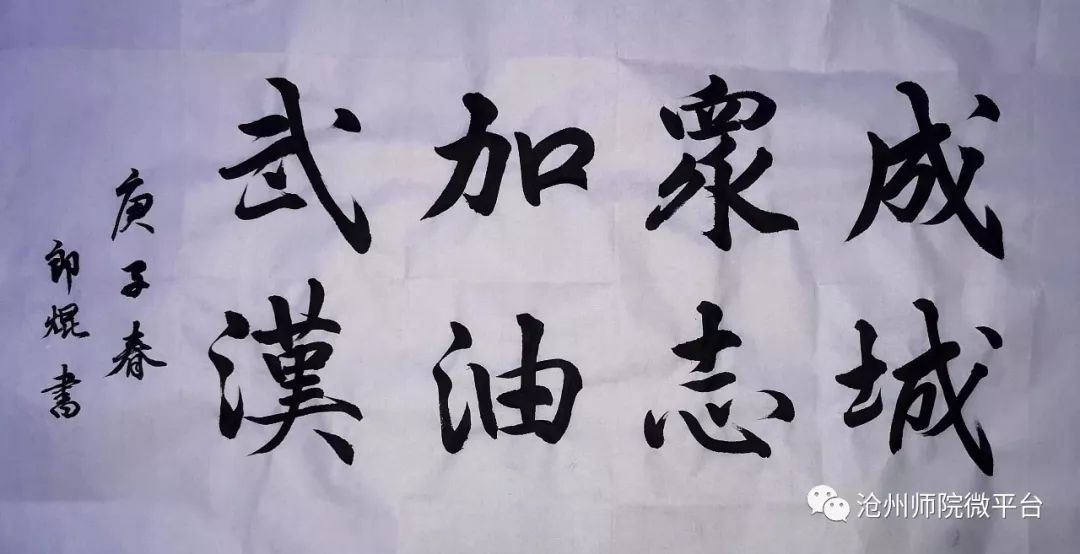 成城
眾志
加油
武漢
庚子春
郎焜書
沧州师院微平台